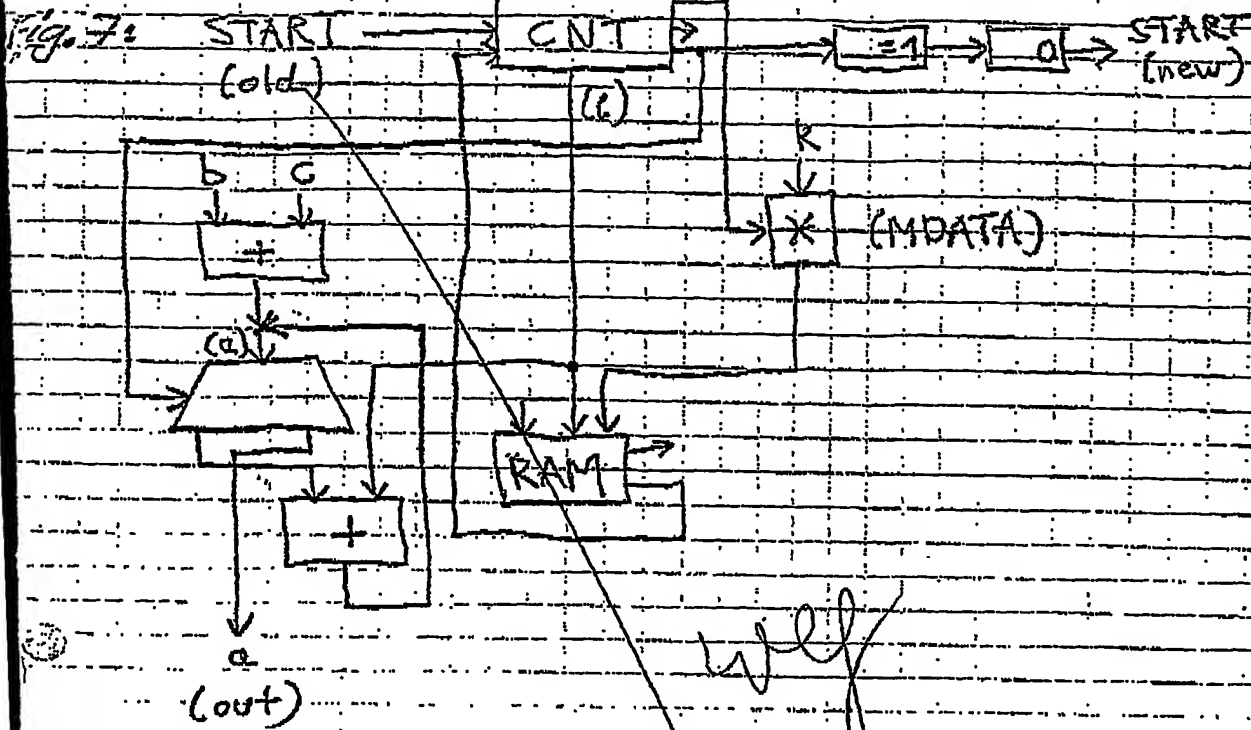 Fig. 7:
START
(old)
CNT
=1
0
START
(new)
(b)
b c
+
K
* (MDATA)
(a)
RAM
+
a
(out)